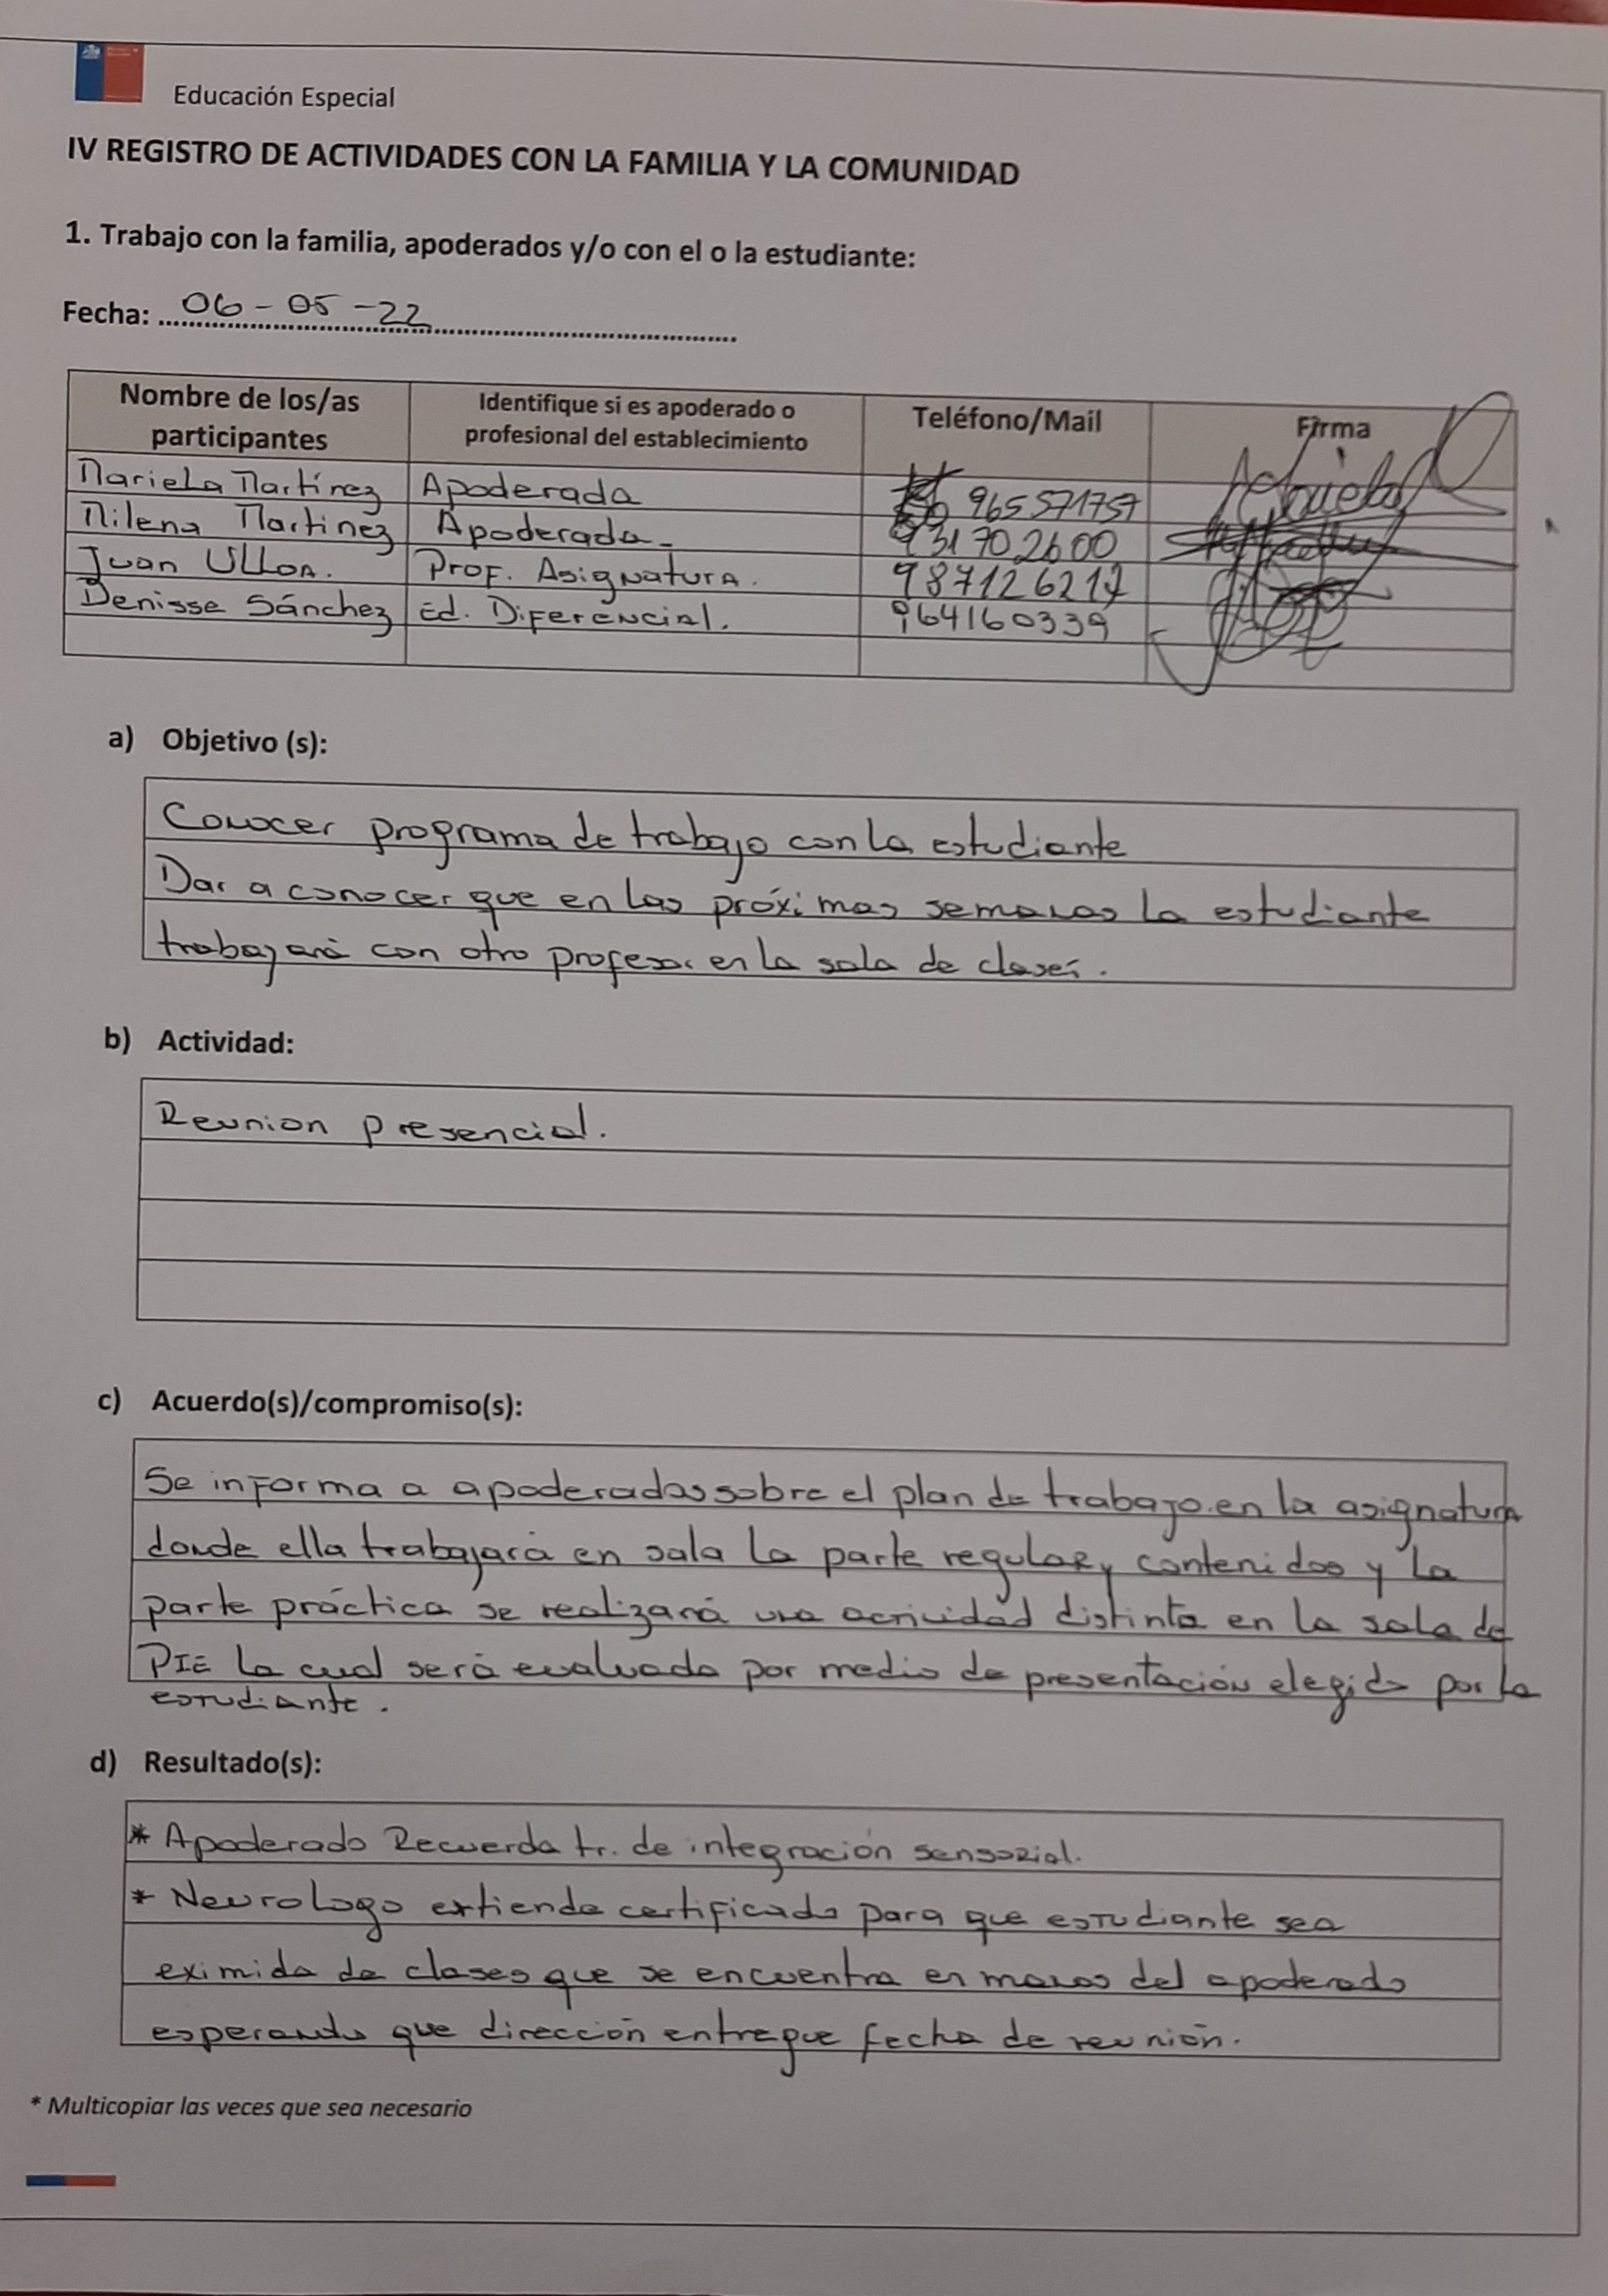 Educación Especial
IV REGISTRO DE ACTIVIDADES CON LA FAMILIA Y LA COMUNIDAD
1. Trabajo con la familia, apoderados y/o con el o la estudiante:
Fecha: 06-05-22
Nombre de los/as participantes | Identifique si es apoderado o profesional del establecimiento | Teléfono/Mail | Firma
Mariela Martínez | Apoderada | 965571757
Milena Martinez | Apoderada. | 931702600
Juan Ulloa. | Prof. Asignatura. | 987126217
Denisse Sánchez | Ed. Diferencial. | 964160339
a) Objetivo (s):
Conocer programa de trabajo con la estudiante
Dar a conocer que en las próximas semanas la estudiante
trabajará con otro profesor en la sala de clases.
b) Actividad:
Reunion presencial.
c) Acuerdo(s)/compromiso(s):
Se informa a apoderadas sobre el plan de trabajo en la asignatura
donde ella trabajará en sala la parte regular y contenidos y la
parte práctica se realizará una actividad distinta en la sala de
PIE la cual será evaluada por medio de presentación elegida por la
estudiante.
d) Resultado(s):
* Apoderado Recuerda tr. de integración sensorial.
* Neurologo extiende certificado para que estudiante sea
eximida de clases que se encuentra en manos del apoderado
esperando que dirección entregue fecha de reunión.
* Multicopiar las veces que sea necesario